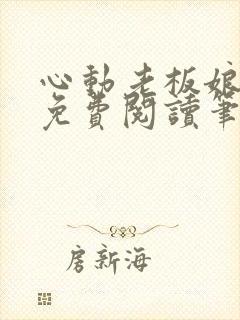 心動老板娘
免費閱讀筆
房新海